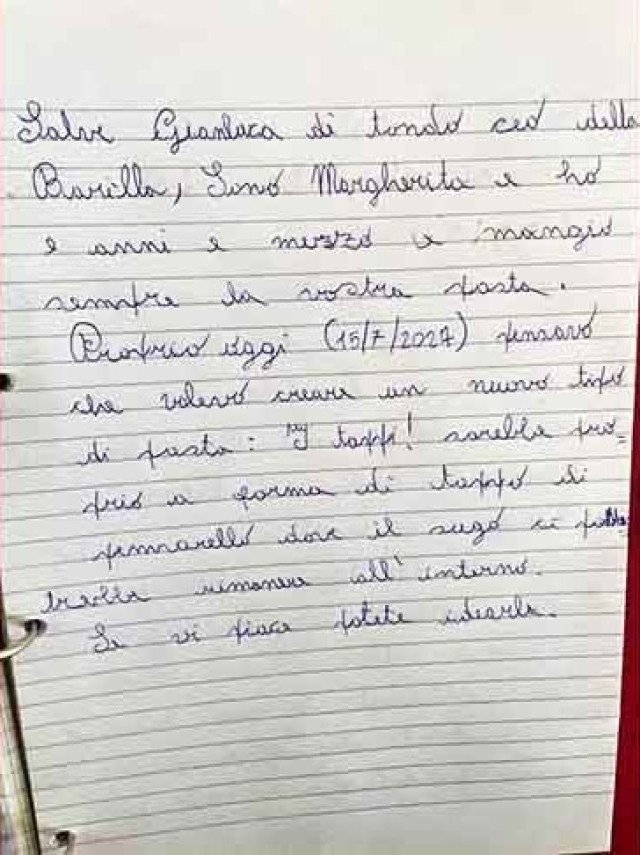 Salve Gianluca di tondo ceo della
Barilla, Sono Margherita e ho
e anni e mezzo e mangio
sempre la vostra pasta.
Proprio oggi (15/7/2024) pensavo
che volevo creare un nuovo tipo
di pasta: "I tappi! sarebbe pro=
prio a forma di tappo di
pennarello dove il sugo ci po
trebbe rimanere all'interno.
Se vi piace potete idearla.